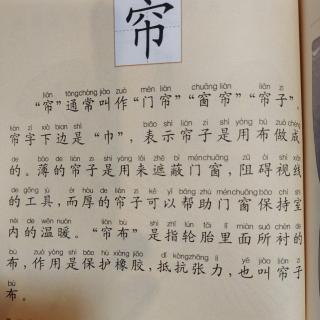 帘
lián tōngcháng jiào zuò mén lián chuāng lián lián zi
“帘”通常叫作“门帘”“窗帘”“帘子”。
lián zì xià bian shì biǎo shì lián zi shì yòng bù zuò chéng
帘字下边是“巾”，表示帘子是用布做成
de báo de lián zi shì yòng lái zhē bì ménchuāng zǔ ài shì xiàn
的。薄的帘子是用来遮蔽门窗，阻碍视线
de gōng jù ér hòu de lián zi kě yǐ bāng zhù ménchuāng bǎo chí shì
的工具，而厚的帘子可以帮助门窗保持室
nèi de wēn nuǎn lián bù shì zhǐ lún tāi lǐ miàn suǒ chèn de
内的温暖。“帘布”是指轮胎里面所衬的
bù zuò yòng shì bǎo hù xiàng jiāo dǐ kàngzhāng lì yě jiào lián zi
布，作用是保护橡胶，抵抗张力，也叫帘子
bù
布。